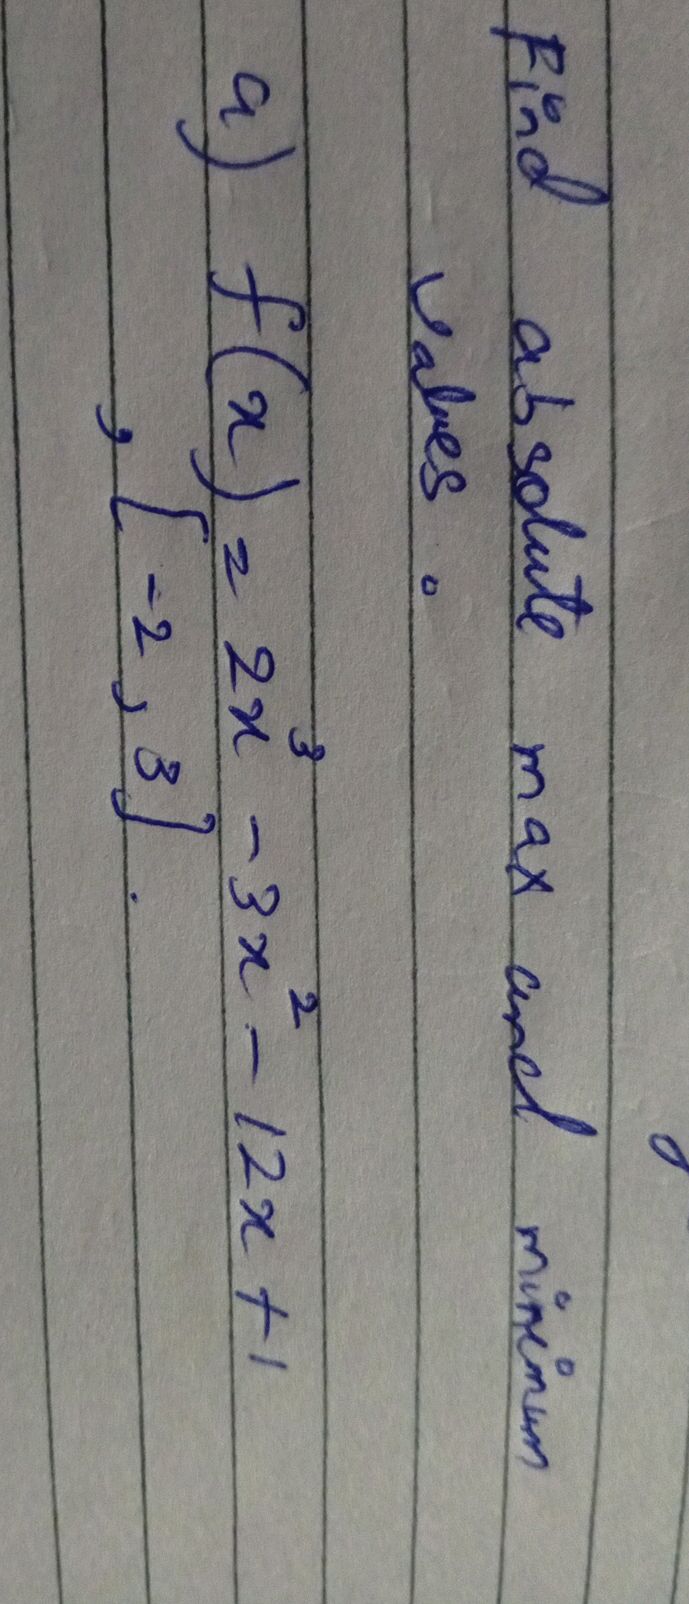 Find absolute max and minimum
values.
a) f(x) = 2x³ - 3x² - 12x + 1
, [-2, 3].